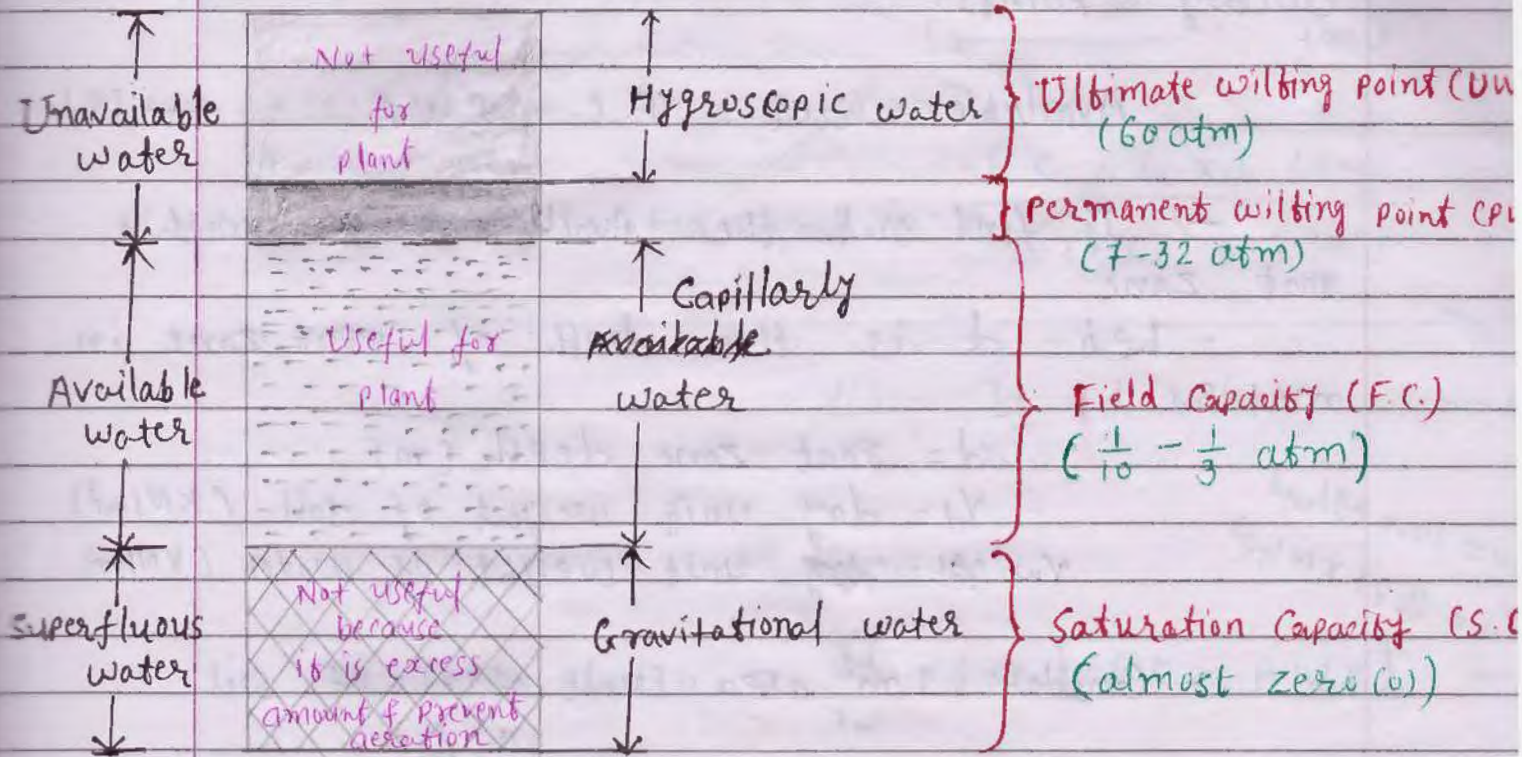 Unavailable
water
Not useful
for
plant
Hygroscopic water
Ultimate wilting point (UW
(60 atm)
Permanent wilting point (PW
(7-32 atm)
Available
water
Useful for
plant
Capillarly
Available
water
Field Capacity (F.C.)
(1/10 - 1/3 atm)
Superfluous
water
Not useful
because
it is excess
amount & prevent
aeration
Gravitational water
Saturation Capacity (S.C
(almost zero (0))